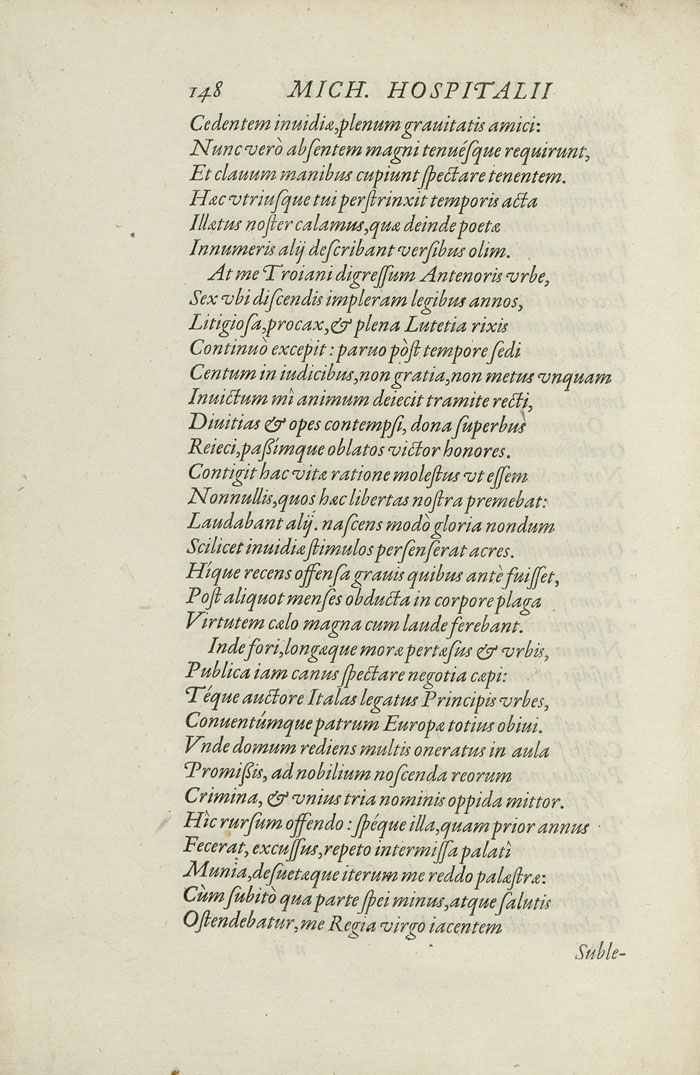 148 MICH. HOSPITALII
Cedentem inuidiæ,plenum grauitatis amici:
Nunc verò abſentem magni tenuéſque requirunt,
Et clauum manibus cupiunt ſpectare tenentem.
Hæc vtriuſque tui perſtrinxit temporis acta
Illætus noſter calamus,quæ deinde poetæ
Innumeris alij deſcribant verſibus olim.
At me Troiani digreſſum Antenoris vrbe,
Sex vbi diſcendis impleram legibus annos,
Litigioſa,procax,& plena Lutetia rixis
Continuò excepit : paruo pòſt tempore ſedi
Centum in iudicibus,non gratia,non metus vnquam
Inuictum mì animum deiecit tramite recti,
Diuitias & opes contempſi, dona ſuperbus
Reieci,paßímque oblatos victor honores.
Contigit hac vitæ ratione moleſtus vt eſſem
Nonnullis,quos hæc libertas noſtra premebat:
Laudabant alij. naſcens modò gloria nondum
Scilicet inuidiæ ſtimulos perſenſerat acres.
Híque recens offenſa grauis quibus antè fuiſſet,
Poſt aliquot menſes obducta in corpore plaga
Virtutem cælo magna cum laude ferebant.
Inde fori,longæque moræ pertæſus & vrbis,
Publica iam canus ſpectare negotia cæpi:
Téque auctore Italas legatus Principis vrbes,
Conuentúmque patrum Europæ totius obiui.
Vnde domum rediens multis oneratus in aula
Promißis, ad nobilium noſcenda reorum
Crimina, & vnius tria nominis oppida mittor.
Hìc rurſum offendo : ſpéque illa,quam prior annus
Fecerat, excuſſus,repeto intermiſſa palatì
Munia,deſuetæque iterum me reddo palæſtræ:
Cùm ſubitò qua parte ſpei minus,atque ſalutis
Oſtendebatur,me Regia virgo iacentem
Suble-